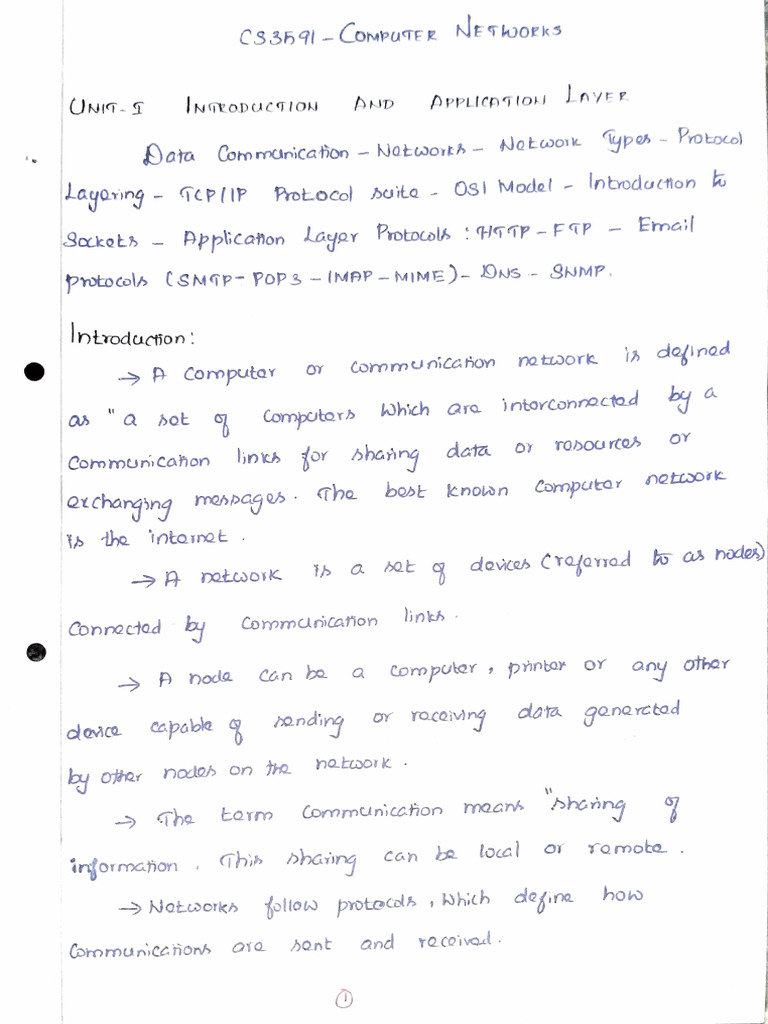 CS3591 - COMPUTER NETWORKS
UNIT-I INTRODUCTION AND APPLICATION LAYER
Data Communication - Networks - Network Types - Protocol
Layering - TCP/IP Protocol suite - OSI Model - Introduction to
Sockets - Application Layer Protocols : HTTP - FTP - Email
protocols (SMTP - POP3 - IMAP - MIME) - DNS - SNMP.
Introduction:
→ A computer or communication network is defined
as "a set of computers which are interconnected by a
communication links for sharing data or resources or
exchanging messages. The best known computer network
is the internet.
→ A network is a set of devices (referred to as nodes)
connected by communication links.
→ A node can be a computer, printer or any other
device capable of sending or receiving data generated
by other nodes on the network.
→ The term communication means "sharing of
information. This sharing can be local or remote.
→ Networks follow protocols, which define how
communications are sent and received.
1